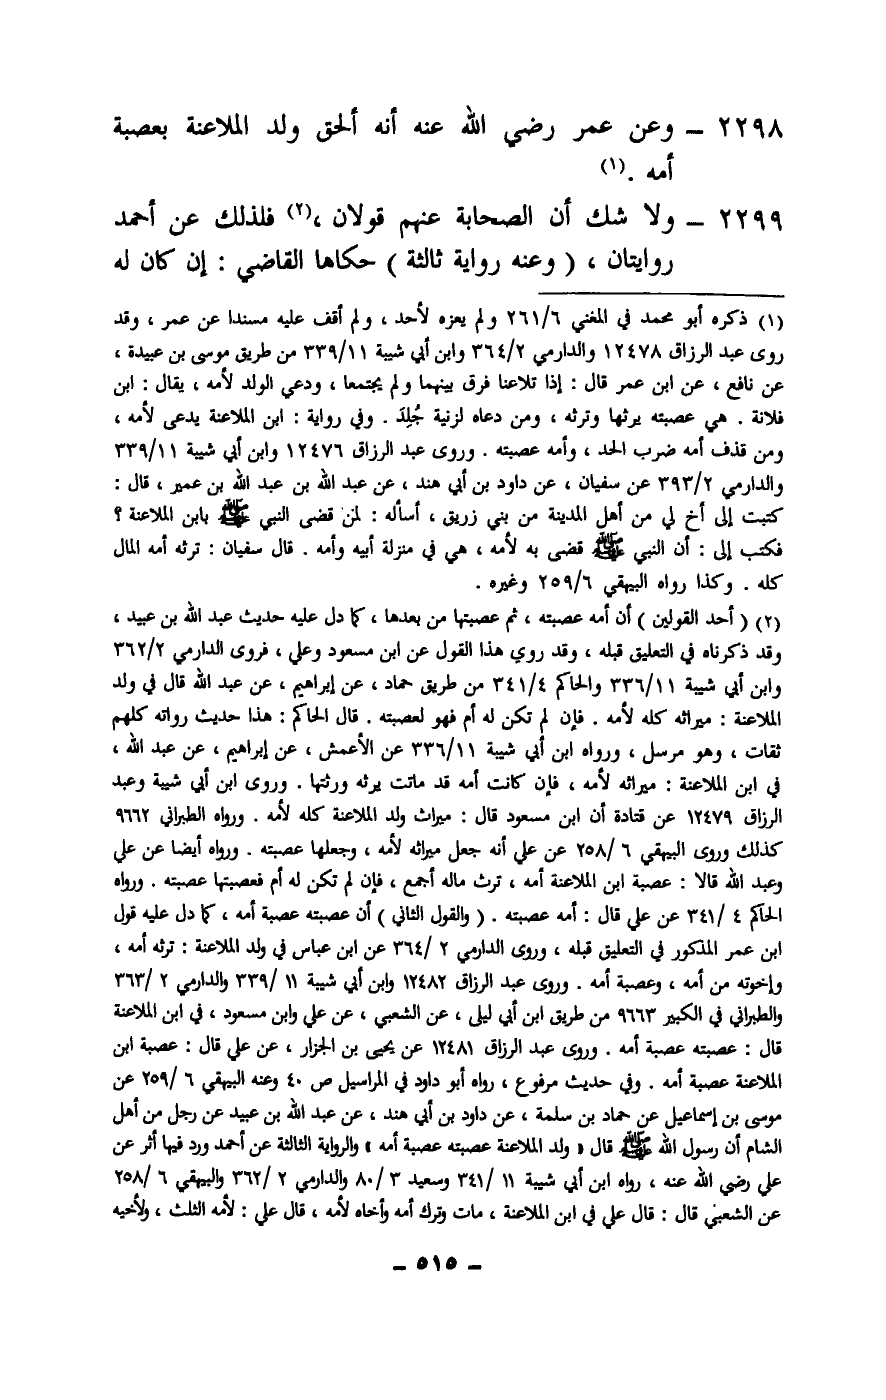 ٢٢٩٨ – وعن عمر رضي الله عنه أنه ألحق ولد الملاعنة بعصبة
أمه .(١)
٢٢٩٩ – ولا شك أن الصحابة عنهم قولان ،(٢) فلذلك عن أحمد
روايتان ، ( وعنه رواية ثالثة ) حكاها القاضي : إن كان له
(١) ذكره أبو محمد في المغني ٢٦١/٦ ولم يعزه لأحد ، ولم أقف عليه مسندا عن عمر ، وقد
روى عبد الرزاق ١٢٤٧٨ والدارمي ٣٦٤/٢ وابن أبي شيبة ٣٣٩/١١ من طريق موسى بن عبيدة ،
عن نافع ، عن ابن عمر قال : إذا تلاعنا فرق بينهما ولم يجتمعا ، ودعي الولد لأمه ، يقال : ابن
فلانة . هي عصبته يرثها وترثه ، ومن دعاه لزنية جُلِدَ . وفي رواية : ابن الملاعنة يدعى لأمه ،
ومن قذف أمه ضرب الحد ، وأمه عصبته . وروى عبد الرزاق ١٢٤٧٦ وابن أبي شيبة ٣٣٩/١١
والدارمي ٣٩٣/٢ عن سفيان ، عن داود بن أبي هند ، عن عبد الله بن عبد الله بن عمير ، قال :
كتبت إلى أخ لي من أهل المدينة من بني زريق ، أسأله : لمن قضى النبي ﷺ بابن الملاعنة ؟
فكتب إلى : أن النبي ﷺ قضى به لأمه ، هي في منزلة أبيه وأمه . قال سفيان : ترثه أمه المال
كله . وكذا رواه البيهقي ٢٥٩/٦ وغيره .
(٢) ( أحد القولين ) أن أمه عصبته ، ثم عصبتها من بعدها ، كما دل عليه حديث عبد الله بن عبيد ،
وقد ذكرناه في التعليق قبله ، وقد روي هذا القول عن ابن مسعود وعلي ، فروى الدارمي ٣٦٢/٢
وابن أبي شيبة ٣٣٦/١١ والحاكم ٣٤١/٤ من طريق حماد ، عن إبراهيم ، عن عبد الله قال في ولد
الملاعنة : ميراثه كله لأمه . فإن لم تكن له أم فهو لعصبته . قال الحاكم : هذا حديث رواته كلهم
ثقات ، وهو مرسل ، ورواه ابن أبي شيبة ٣٣٦/١١ عن الأعمش ، عن إبراهيم ، عن عبد الله ،
في ابن الملاعنة : ميراثه لأمه ، فإن كانت أمه قد ماتت يرثه ورثتها . وروى ابن أبي شيبة وعبد
الرزاق ١٢٤٧٩ عن قتادة أن ابن مسعود قال : ميراث ولد الملاعنة كله لأمه . ورواه الطبراني ٩٦٦٢
كذلك وروى البيهقي ٦ /٢٥٨ عن علي أنه جعل ميراثه لأمه ، وجعلها عصبته . ورواه أيضا عن علي
وعبد الله قالا : عصبة ابن الملاعنة أمه ، ترث ماله أجمع ، فإن لم تكن له أم فعصبتها عصبته . ورواه
الحاكم ٤ /٣٤١ عن علي قال : أمه عصبته . ( والقول الثاني ) أن عصبته عصبة أمه ، كما دل عليه قول
ابن عمر المذكور في التعليق قبله ، وروى الدارمي ٢ /٣٦٤ عن ابن عباس في ولد الملاعنة : ترثه أمه ،
وإخوته من أمه ، وعصبة أمه . وروى عبد الرزاق ١٢٤٨٢ وابن أبي شيبة ١١ /٣٣٩ والدارمي ٢ /٣٦٣
والطبراني في الكبير ٩٦٦٣ من طريق ابن أبي ليلى ، عن الشعبي ، عن علي وابن مسعود ، في ابن الملاعنة
قال : عصبته عصبة أمه . وروى عبد الرزاق ١٢٤٨١ عن يحيى بن الجزار ، عن علي قال : عصبة ابن
الملاعنة عصبة أمه . وفي حديث مرفوع ، رواه أبو داود في المراسيل ص ٤٠ وعنه البيهقي ٦ /٢٥٩ عن
موسى بن إسماعيل عن حماد بن سلمة ، عن داود بن أبي هند ، عن عبد الله بن عبيد عن رجل من أهل
الشام أن رسول الله ﷺ قال « ولد الملاعنة عصبته عصبة أمه » والرواية الثالثة عن أحمد ورد فيها أثر عن
علي رضي الله عنه ، رواه ابن أبي شيبة ١١ /٣٤١ وسعيد ٣ /٨٠ والدارمي ٢ /٣٦٢ والبيهقي ٦ /٢٥٨
عن الشعبي قال : قال علي في ابن الملاعنة ، مات وترك أمه وأخاه لأمه ، قال علي : لأمه الثلث ، ولأخيه
– ٥١٥ –